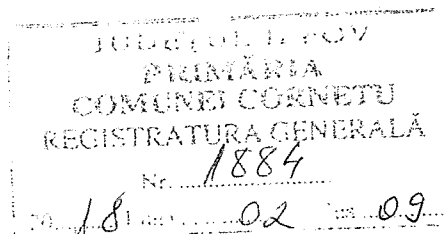 JUDEȚUL ILFOV
PRIMĂRIA
COMUNEI CORNETU
REGISTRATURA GENERALĂ
Nr. 1884
20 18 02 09